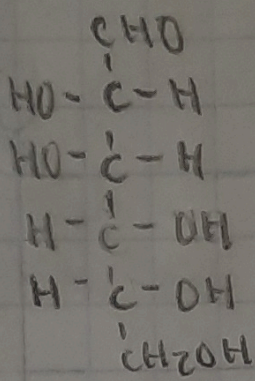 CHO
HO-C-H
HO-C-H
H-C-OH
H-C-OH
CH2OH